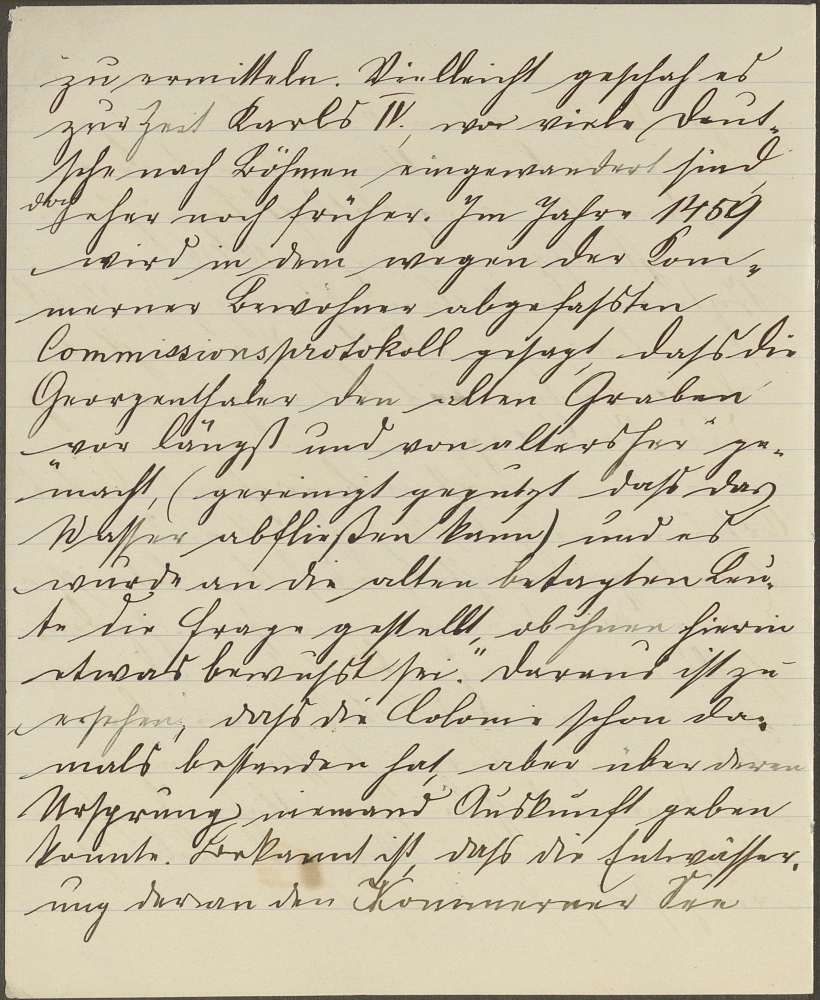 zu ermitteln. Vielleicht geschah es
zur Zeit Karls IV., wo viele Deut-
sche nach Böhmen eingewandert sind,
doch eher noch früher. Im Jahre 1459
wird in dem wegen der Kom-
merner Bewohner abgefaßten
Commissionsprotokoll gesagt, daß die
Georgenthaler den alten Graben
vor längst und von altersher "ge-
macht, (gereinigt geputzt daß das
Wasser abfließen kann) und es
wurde an die alten betagten Leu-
te die Frage gestellt, ob ihnen hierin
etwas bewußt sei." Daraus ist zu
ersehen, daß die Colonie schon da-
mals bestanden hat, aber über deren
Ursprung niemand Auskunft geben
konnte. Bekannt ist, daß die Entwässer-
ung der an den Kommerner See